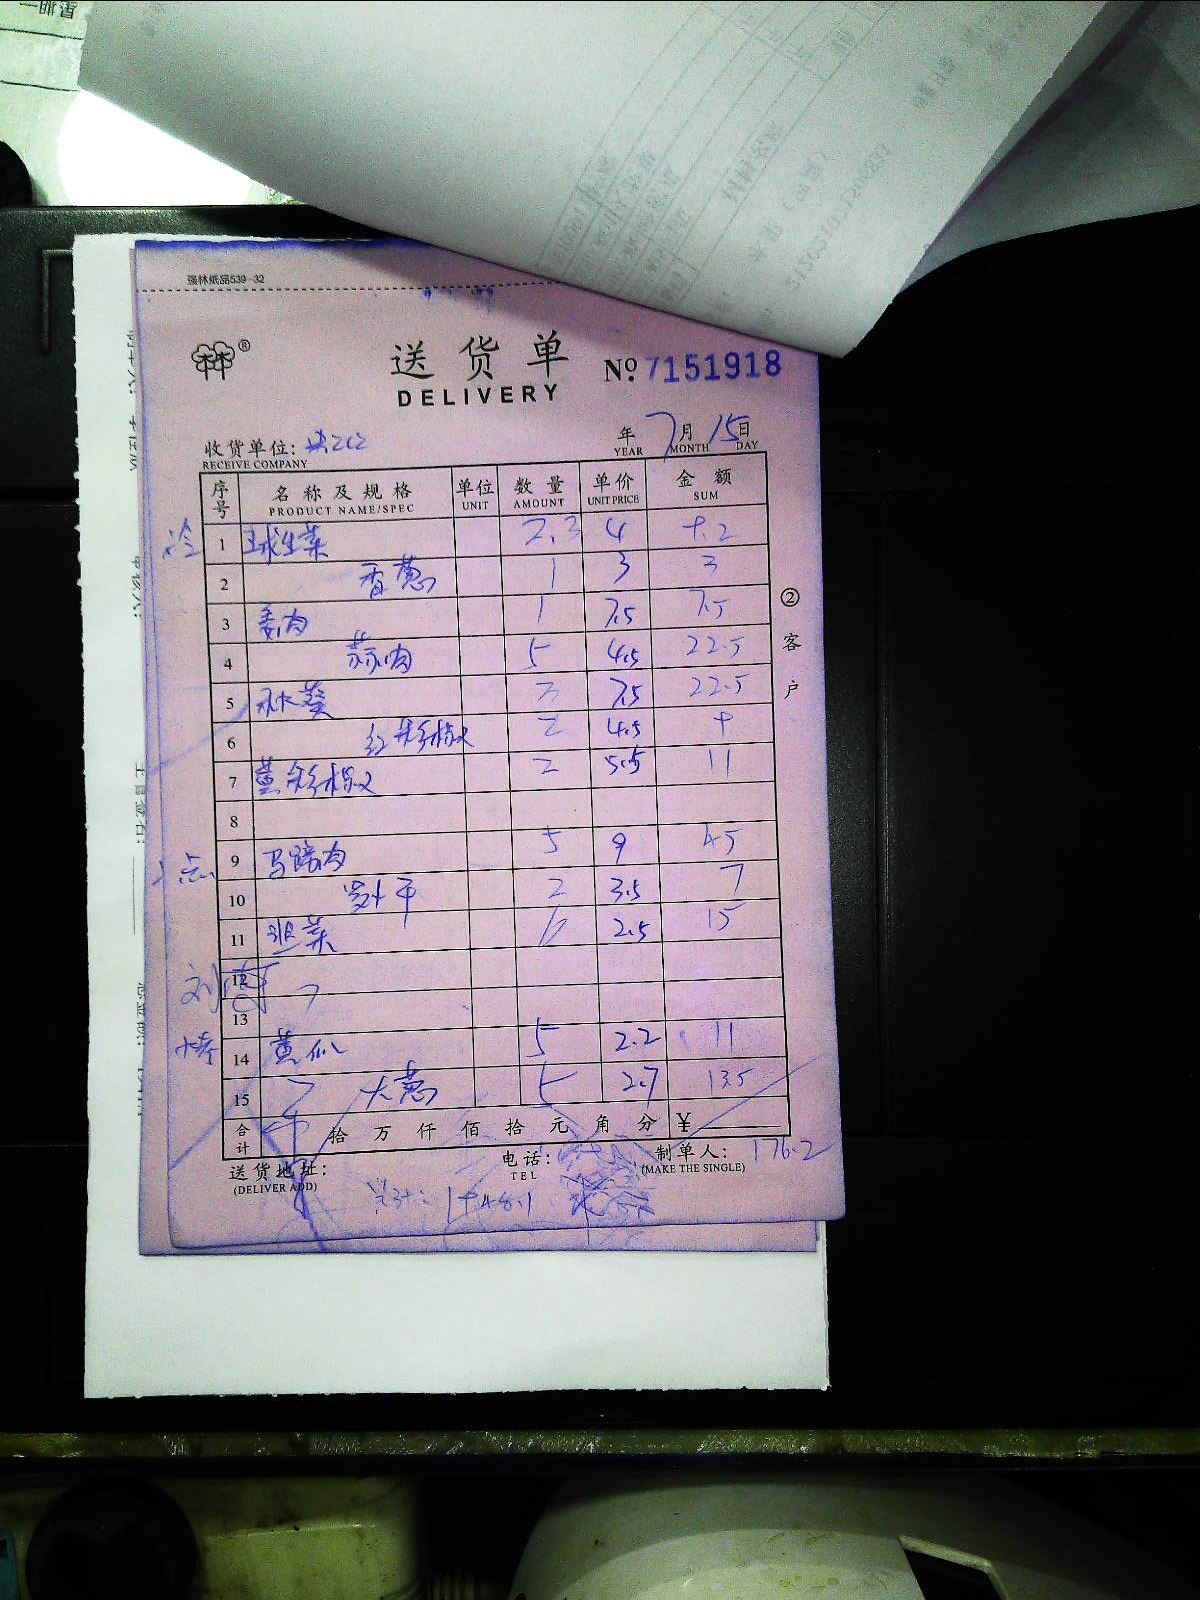 强林纸品539-32
送货单
DELIVERY
No. 7151918
收货单位:
RECEIVE COMPANY
年 7月 15日
YEAR MONTH DAY
序号 名称及规格 单位 数量 单价 金额
PRODUCT NAME/SPEC UNIT AMOUNT UNIT PRICE SUM
冷 1 球生菜 2.3 4 9.2
2 香葱 1 3 3
3 姜肉 1 7.5 7.5
4 蒜肉 5 4.5 22.5
5 秋葵 3 7.5 22.5
6 红彩椒 2 4.5 9
7 黄彩椒 2 5.5 11
8
9 马蹄肉 5 9 45
10 萝卜干 2 3.5 7
11 韭菜 6 2.5 15
12
13
14 黄瓜 5 2.2 11
15 大葱 5 2.7 13.5
合计 拾 万 仟 佰 拾 元 角 分 ¥
176.2
送货地址:
(DELIVER ADD)
电话:
TEL
制单人:
(MAKE THE SINGLE)
②客户